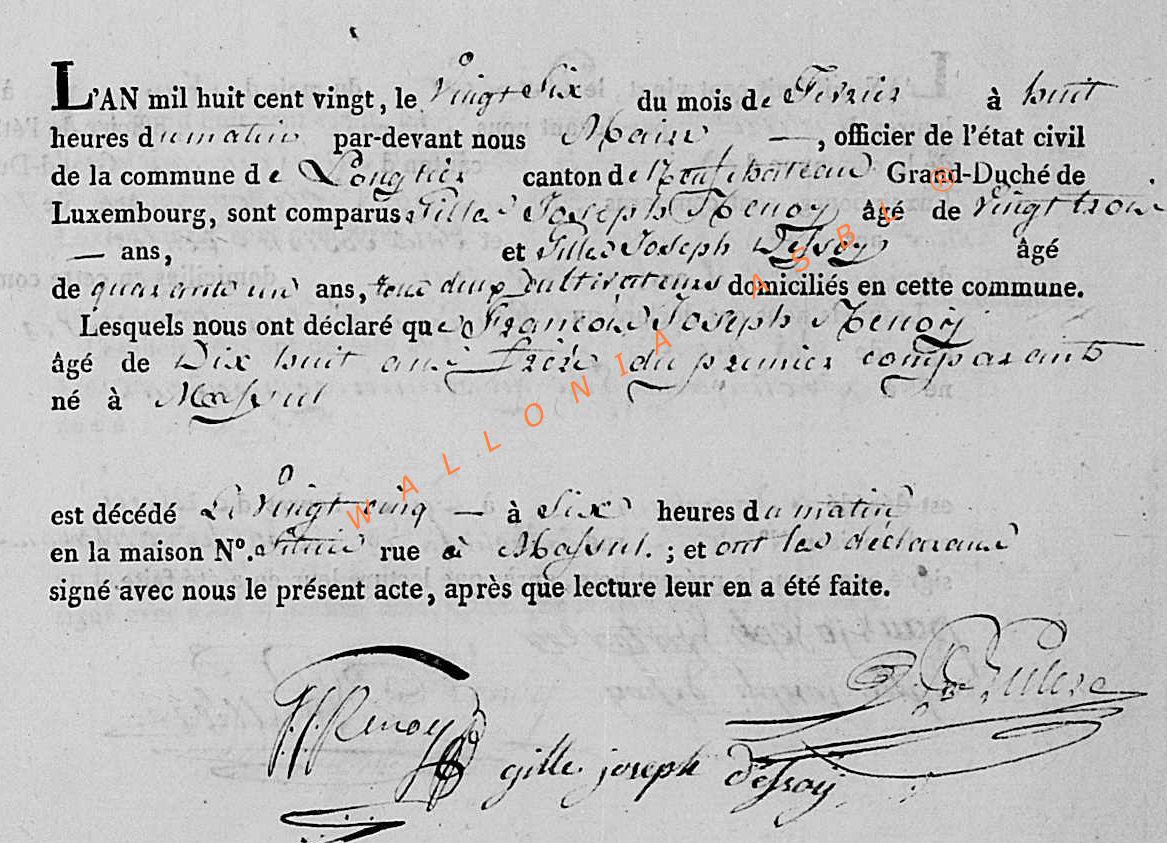 L'AN mil huit cent vingt, le vingt Six du mois de Fevrier à huit
heures du matin par-devant nous Maire —, officier de l'état civil
de la commune de Longlier canton de Neufchateau Grand-Duché de
Luxembourg, sont comparus Gille Joseph Henoy âgé de vingt trois
— ans, et Gille Joseph Dessoy âgé
de quarante un ans, tous deux Cultivateurs domiciliés en cette commune.
Lesquels nous ont déclaré que François Joseph Henoy
âgé de Dix huit ans frère du premier comparant
né à Massul
est décédé le vingt cinq — à Six heures du matin
en la maison N°. située rue à Massul. ; et ont les déclarans
signé avec nous le présent acte, après que lecture leur en a été faite.
Henoy
gille joseph dessoÿ
WALLONIA ASBL ®